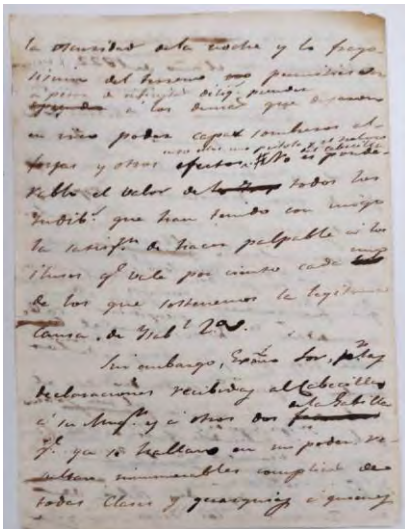 la oscuridad de la noche y lo frago-
sisimo del terreno no permitieron
á pesar de
á los demas que dejaron
en mio poder capas sombreros al-
forjas y otros efectos. No es ponde-
rable el valor de todos los
Indib.s que han tenido con migo
la satisf.n de hacer palpable á los
ilusos q.e vale por ciento cada
de los que sostenemos la legitima
Causa de Ysab.l 2.a
Sin embargo, Exmo Sor, p.r las
declaraciones recibidas al Cabecilla
á su y á otros dos de la Gabilla
q.e ya se hallan en mi poder re-
sultan innumerables complices de
todas clases y á quienes